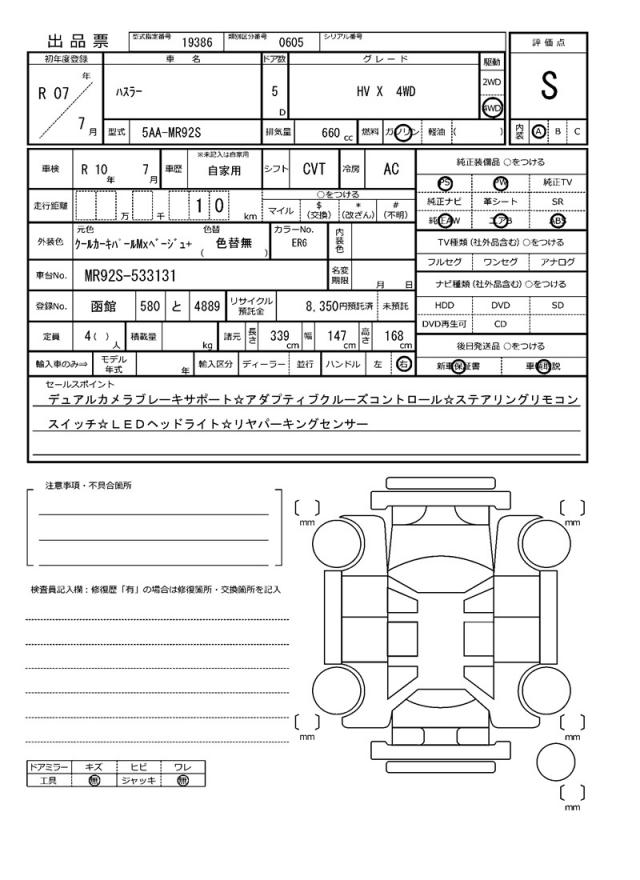 出品票 型式指定番号 19386 類別区分番号 0605 シリアル番号
評価点
S
初年度登録 車名 ドア数 グレード 駆動
R 07 年 7 月 ハスラー 5 D HV X 4WD 2WD 4WD
型式 5AA-MR92S 排気量 660 cc 燃料 ガソリン 軽油 ( ) 内装 A B C
車検 R 10 年 7 月 車歴 ※未記入は自家用 自家用 シフト CVT 冷房 AC
純正装備品 ○をつける
PS PW 純正TV
純正ナビ 革シート SR
純正AW エアB ABS
走行距離 万 千 1 0 km ○をつける
マイル $ (交換) * (改ざん) # (不明)
外装色 元色 クールカーキパールMxベージュ+ 色替 ( 色替無 ) カラーNo. ER6 内装色
TV種類 (社外品含む) ○をつける
フルセグ ワンセグ アナログ
車台No. MR92S-533131 名変期限 月 日
ナビ種類 (社外品含む) ○をつける
登録No. 函館 580 と 4889 リサイクル預託金 8,350円預託済 未預託
HDD DVD SD
DVD再生可 CD
定員 4( ) 人 積載量 kg 諸元 長さ 339 cm 幅 147 cm 高さ 168 cm
後日発送品 ○をつける
輸入車のみ⇒ モデル年式 年 輸入区分 ディーラー 並行 ハンドル 左 右
新車保証書 車輌取説
セールスポイント
デュアルカメラブレーキサポート☆アダプティブクルーズコントロール☆ステアリングリモコン
スイッチ☆LEDヘッドライト☆リヤパーキングセンサー
注意事項・不具合箇所
mm mm
検査員記入欄：修復歴「有」の場合は修復箇所・交換箇所を記入
mm mm
ドアミラー キズ ヒビ ワレ
工具 無 ジャッキ 無
mm